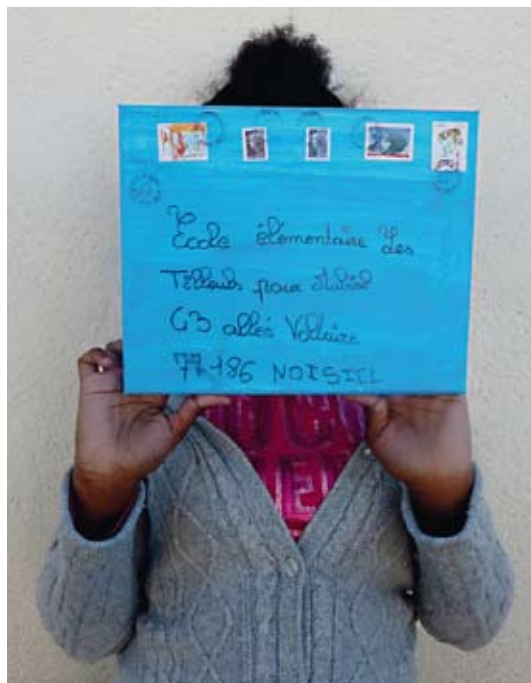 École élementaire des
Tilleuls pour
63 allée Voltaire
77186 NOISIEL